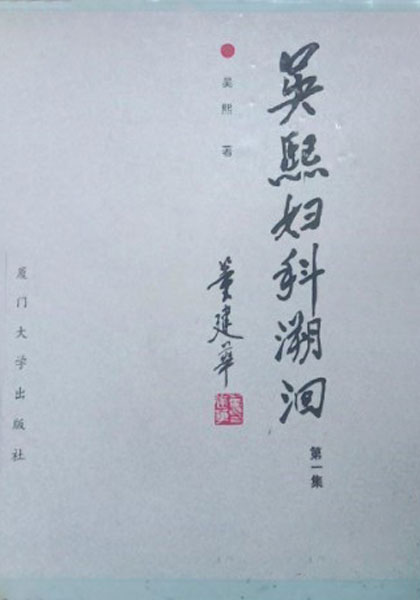 吴熙妇科溯洄
第一集
吴熙 著
董建华
厦门大学出版社